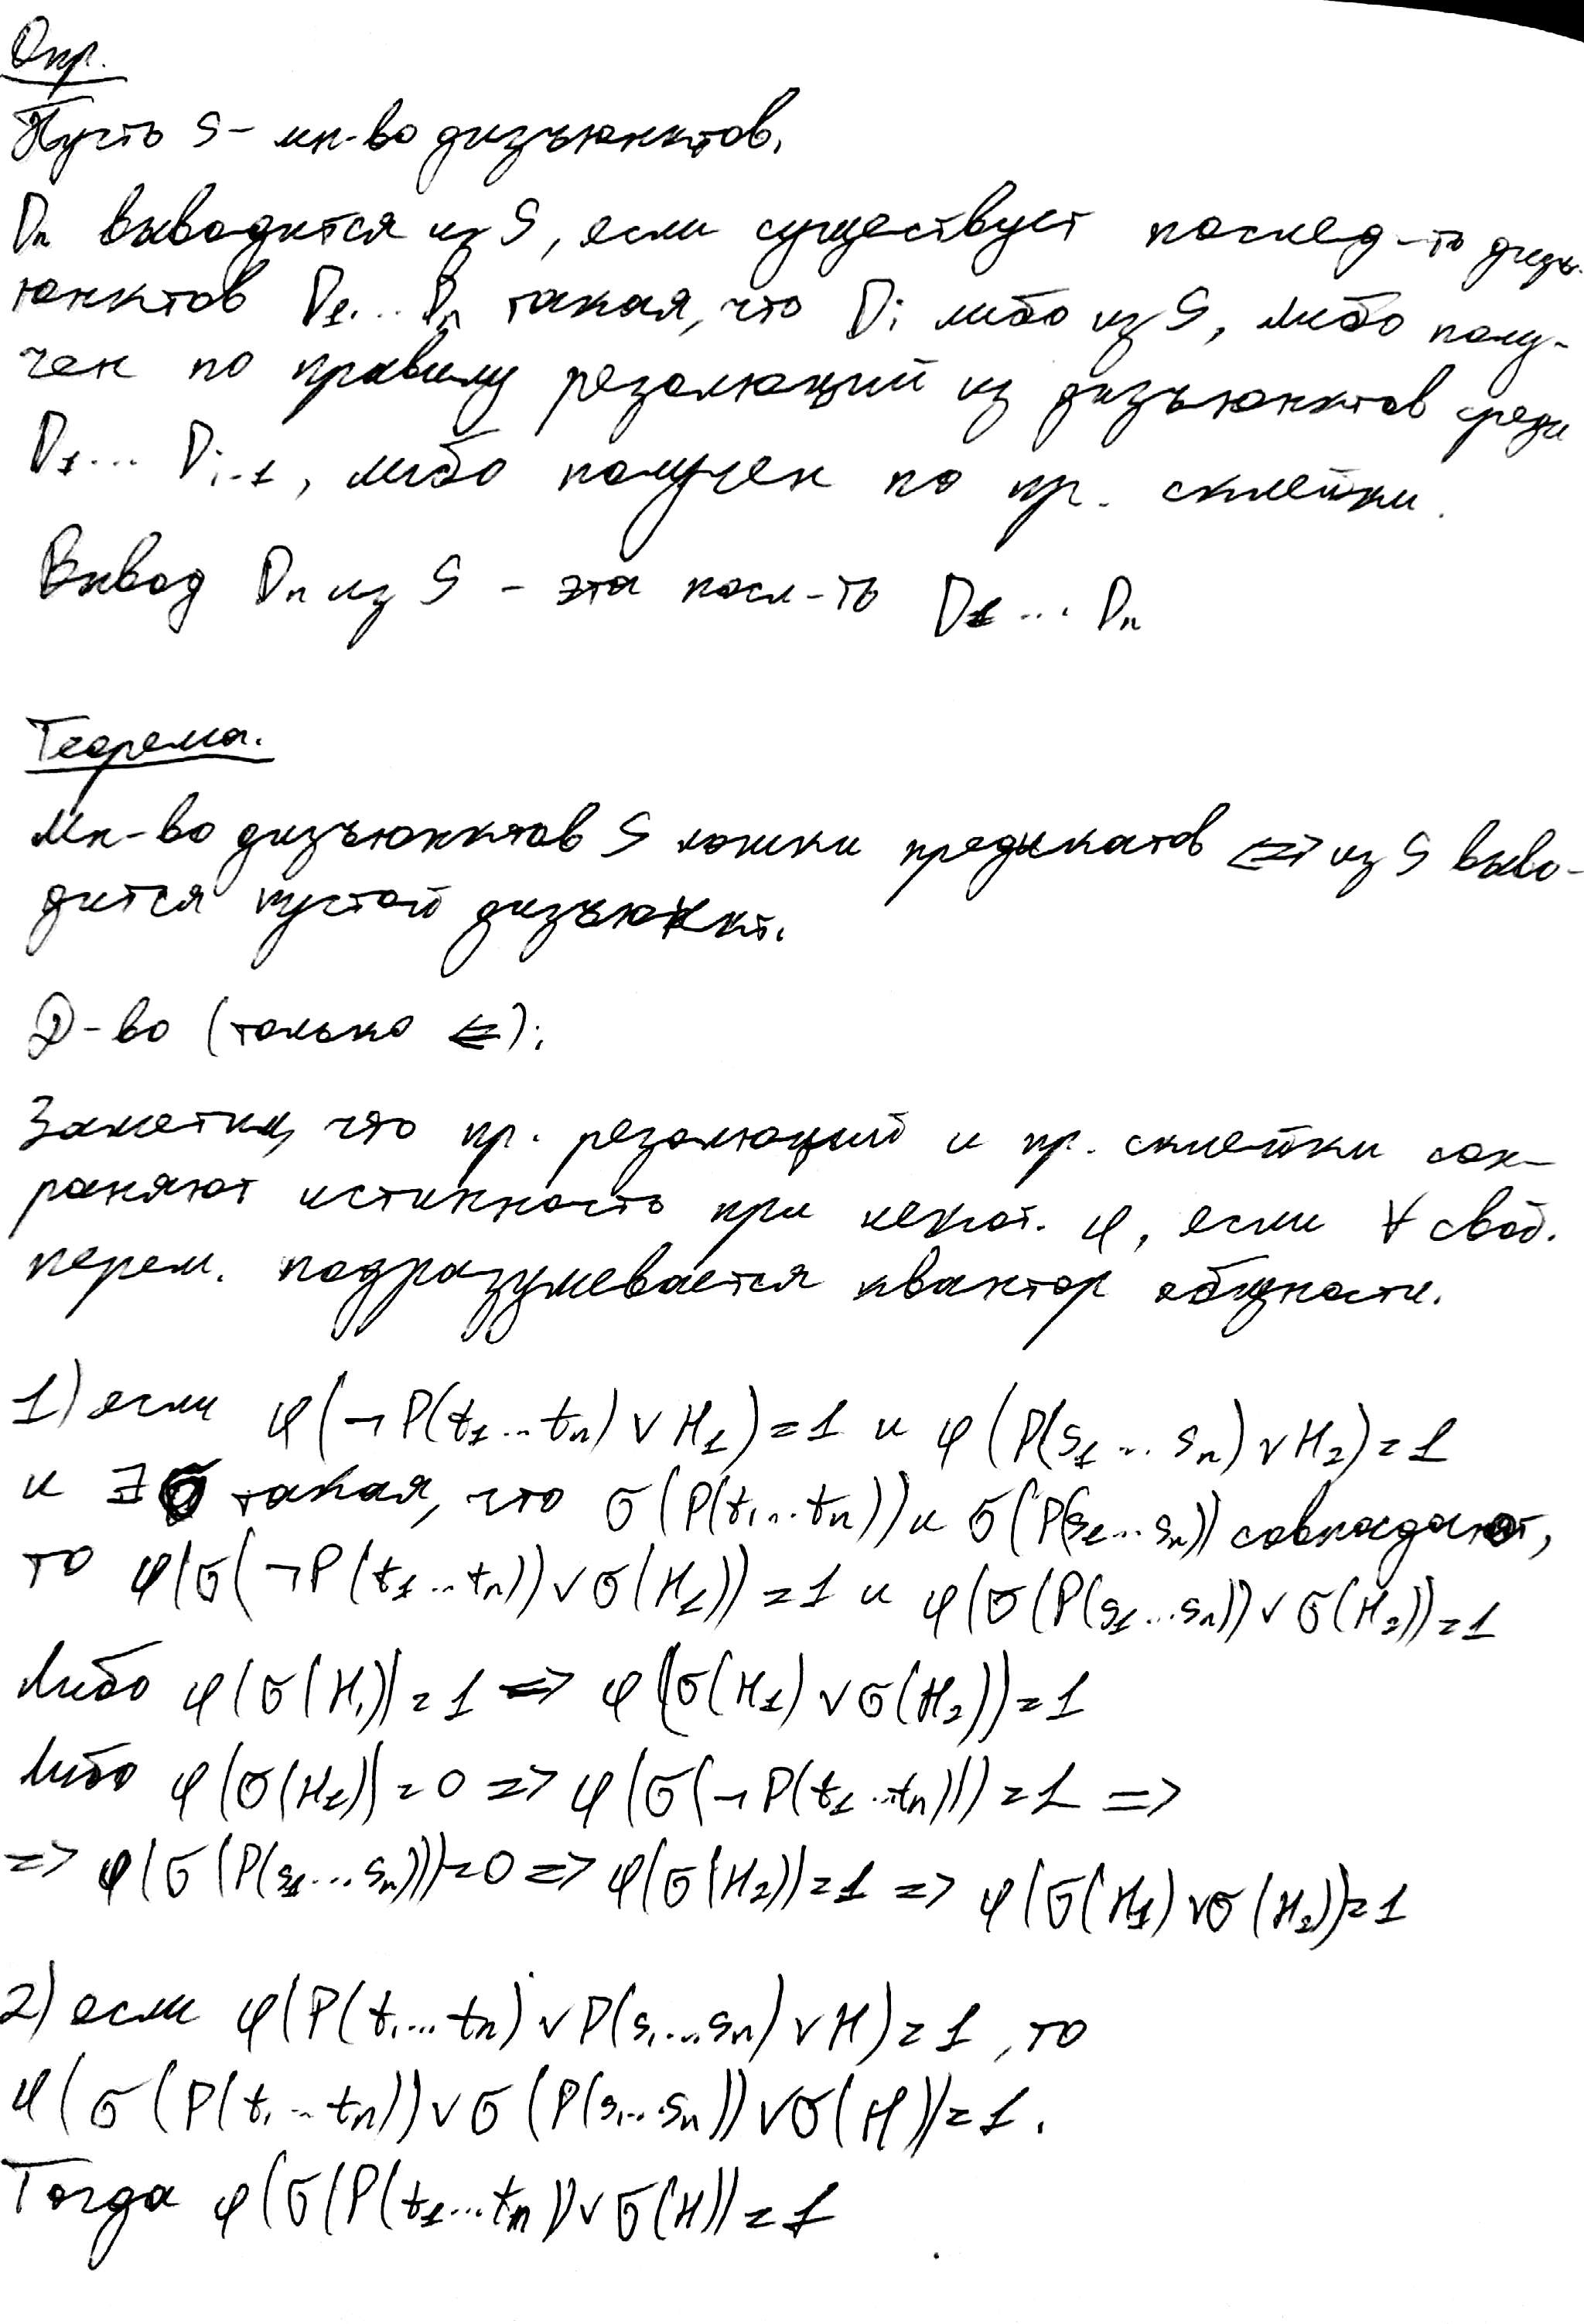 Опр.
Пусть S - мн-во дизъюнктов.
Dₙ выводится из S, если существует послед-ть дизъ-
юнктов D₁...Dₙ такая, что Dᵢ либо из S, либо полу-
чен по правилу резолюций из дизъюнктов среди
D₁... Dᵢ₋₁, либо получен по пр. склейки.
Вывод Dₙ из S - эта посл-ть D₁ ... Dₙ
Теорема.
Мн-во дизъюнктов S логики предикатов <=> из S выво-
дится пустой дизъюнкт.
Д-во (только <=):
Заметим, что пр. резолюций и пр. склейки сох-
раняют истинность при некот. φ, если ∀ своб.
перем. подразумевается квантор общности.
1) если φ(¬P(t₁...tₙ) ∨ H₁)=1 и φ(P(s₁...sₙ) ∨ H₂)=1
и ∃σ такая, что σ(P(t₁...tₙ)) и σ(P(s₁...sₙ)) совпадают,
то φ(σ(¬P(t₁...tₙ)) ∨ σ(H₁))=1 и φ(σ(P(s₁...sₙ)) ∨ σ(H₂))=1
Либо φ(σ(H₁))=1 => φ(σ(H₁) ∨ σ(H₂))=1
Либо φ(σ(H₁))=0 => φ(σ(¬P(t₁...tₙ)))=1 =>
=> φ(σ(P(s₁...sₙ)))=0 => φ(σ(H₂))=1 => φ(σ(H₁) ∨ σ(H₂))=1
2) если φ(P(t₁...tₙ) ∨ P(s₁...sₙ) ∨ H)=1, то
φ(σ(P(t₁...tₙ)) ∨ σ(P(s₁...sₙ)) ∨ σ(H))=1.
Тогда φ(σ(P(t₁...tₙ)) ∨ σ(H))=1